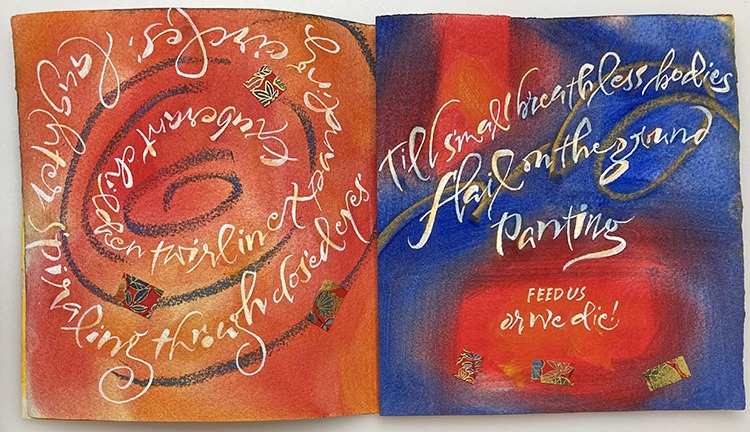 Exuberant children twirling
circles,
laughter spiraling through closed eyes
Till small breathless bodies
flail on the ground
panting
FEED US
or we die!